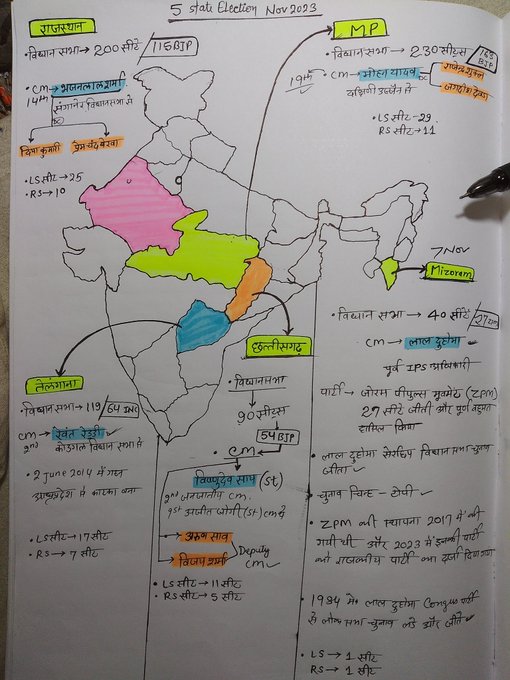 5 State Election Nov 2023
राजस्थान
• विधान सभा → 200 सीटे 115 BJP
• CM → भजनलाल शर्मा
14th
सांगानेर विधानसभा से
DC
दिया कुमारी प्रेमचंद बैरवा
• LS सीट → 25
• RS → 10
MP
• विधान सभा → 230 सीट्स 163 BJP
19th CM → मोहन यादव DC राजेन्द्र शुक्ल
दक्षिणी उज्जैन से जगदीश देवड़ा
LS सीट - 29
RS सीट → 11
7 Nov
Mizoram
• विधान सभा → 40 सीटें 27 ZPM
CM → लाल दुहोमा
पूर्व IPS अधिकारी
पार्टी → जोरम पीपुल्स मूवमेंट (ZPM)
27 सीटें जीती और पूर्ण बहुमत
हासिल किया
• लाल दुहोमा सेरछिप विधान सभा चुनाव
जीता
• चुनाव चिन्ह - टोपी
• ZPM की स्थापना 2017 में की
गयी थी और 2023 में इनकी पार्टी
को राजनीय पार्टी का दर्जा दिया गया
• 1984 में लाल दुहोमा Congress पार्टी
से लोक सभा चुनाव लडे और जीते
• LS → 1 सीट
RS → 1 सीट
छत्तीसगढ़
• विधानसभा
90 सीट्स
54 BJP
CM
विष्णुदेव साय (ST)
2nd जनजातीय CM.
1st अजीत जोगी (ST) CM थे
• अरुण साव
• विजय शर्मा Deputy CM
• LS सीट → 11 सीट
• RS सीट → 5 सीट
तेलंगाना
• विधान सभा → 119 64 INC
CM → रेवंत रेड्डी
2nd कोडंगल विधान सभा से
• 2 June 2014 में गठन
आंध्रप्रदेश से काटकर बना
• LS सीट → 17 सीट
• RS → 7 सीट